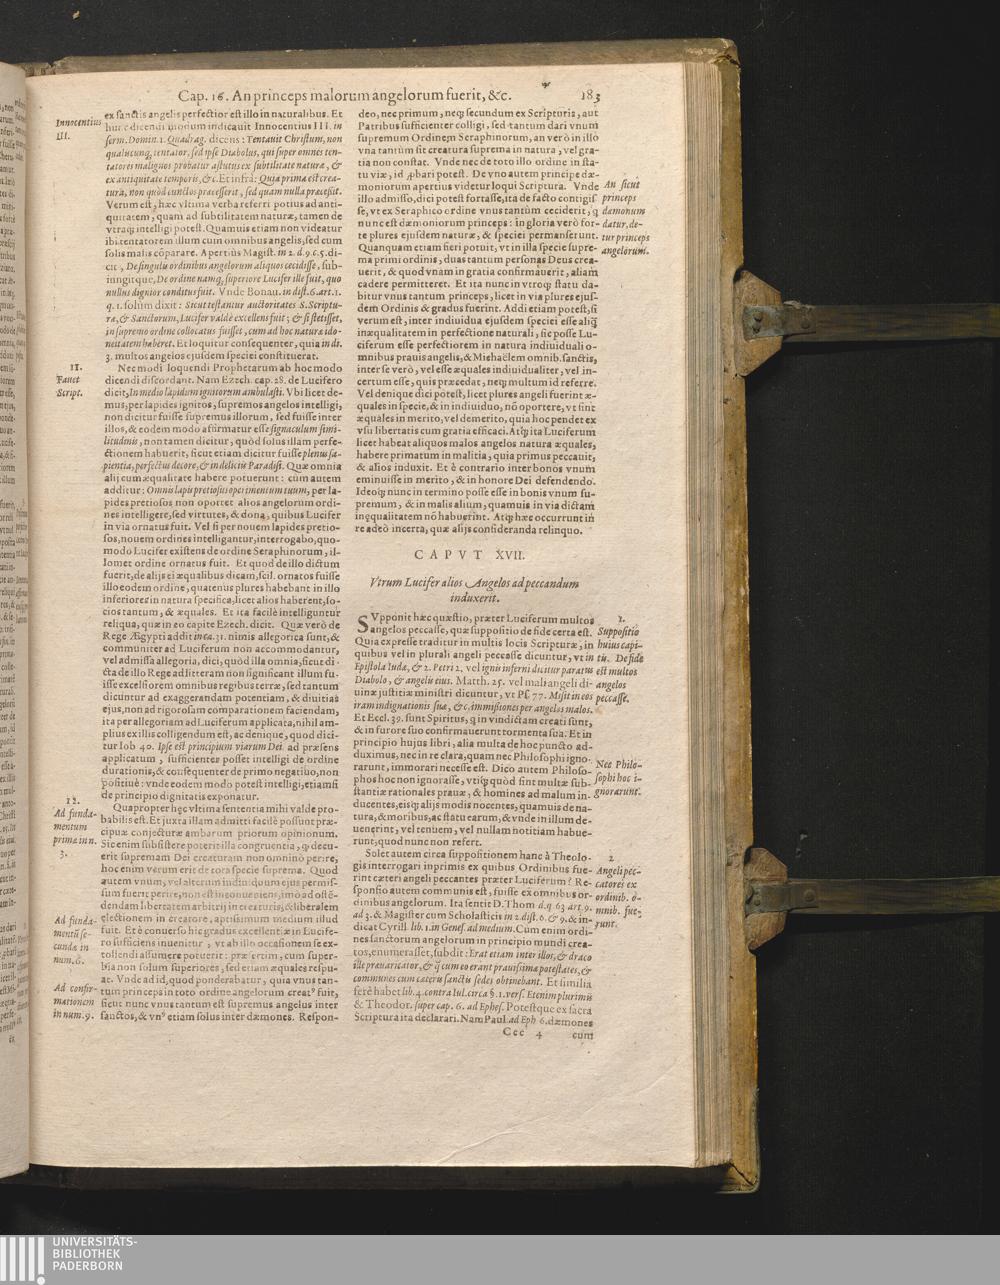 Cap. 16. An princeps malorum angelorum fuerit, &c. 183
Innocentius
III.
ex sanctis angelis perfectior est illo in naturalibus. Et
hunc dicendi modum indicavit Innocentius III. in
serm. Domin. 1. Quadrag. dicens: Tentavit Christum, non
qualiscunq, tentator, sed ipse Diabolus, qui super omnes ten-
tatores malignos probatur astutus ex subtilitate naturæ, &
ex antiquitate temporis, &c. Et infrà: Quia prima est crea-
tura, non quòd cunctos præcesserit, sed quam nulla præcessit.
Verum est, hæc vltima verba referri potius ad anti-
quitatem, quam ad subtilitatem naturæ, tamen de
vtraq; intelligi potest. Quamuis etiam non videatur
ibi tentatorem illum cum omnibus angelis, sed cum
solis malis cōparare. Apertiùs Magist. in 2. d. 9. c. 5. di-
cit, De singulis ordinibus angelorum aliquos cecidisse, sub-
iungitque, De ordine namq, superiore Lucifer ille fuit, quo
nullus dignior conditus fuit. Vnde Bonau. in dist. 6. art. 1.
q. 1. solùm dixit: Sicut testantur auctoritates S. Scriptu-
ræ, & Sanctorum, Lucifer valdè excellens fuit; & si stetisset,
in supremo ordine collocatus fuisset, cum ad hoc naturæ ido-
neitatem haberet. Et loquitur consequenter, quia in di.
3. multos angelos ejusdem speciei constituerat.
11.
Fauet
Script.
Nec modi loquendi Prophetarum ab hoc modo
dicendi discordant. Nam Ezech. cap. 28. de Lucifero
dicit, In medio lapidum ignitorum ambulasti. Vbi licet de-
mus, per lapides ignitos, supremos angelos intelligi,
non dicitur fuisse supremus illorum, sed fuisse inter
illos, & eodem modo affirmatur esse signaculum simi-
litudinis, non tamen dicitur, quòd solus illam perfe-
ctionem habuerit, sicut etiam dicitur fuisse plenus sa-
pientia, perfectus decore, & in deliciis Paradisi. Quæ omnia
alij cum æqualitate habere potuerunt: cùm autem
additur: Omnis lapis pretiosus operimentum tuum, per la-
pides pretiosos non oportet alios angelorum ordi-
nes intelligere, sed virtutes, & dona, quibus Lucifer
in via ornatus fuit. Vel si per nouem lapides pretio-
sos, nouem ordines intelligantur, interrogabo, quo-
modo Lucifer existens de ordine Seraphinorum, il-
lomet ordine ornatus fuit. Et quod de illo dictum
fuerit, de alijs ei æqualibus dicam, scil. ornatos fuisse
illo eodem ordine, quatenùs plures habebant in illo
inferiores in natura specifica, licet alios haberent, so-
cios tantum, & æquales. Et ita facilè intelliguntur
reliqua, quæ in eo capite Ezech. dicit. Quæ verò de
Rege Ægypti addit in ca. 31. nimis allegorica sunt, &
communiter ad Luciferum non accommodantur,
vel admissa allegoria, dici, quòd illa omnia, sicut di-
cta de illo Rege ad litteram non significant illum fu-
isse excelsiorem omnibus regibus terræ, sed tantum
dicuntur ad exaggerandam potentiam, & diuitias
ejus, non ad rigorosam comparationem faciendam,
ita per allegoriam ad Luciferum applicata, nihil am-
plius ex illis colligendum est, ac denique, quod dici-
tur Iob 40. Ipse est principium viarum Dei, ad præsens
applicatum, sufficienter posset intelligi de ordine
durationis, & consequenter de primo negatiuo, non
positiuè: vnde eodem modo potest intelligi, etiamsi
de principio dignitatis exponatur.
12.
Ad funda-
mentum
primæ in n.
3.
Quapropter hęc vltima sententia mihi valde pro-
babilis est. Et juxta illam admitti facilè possunt præ-
cipuæ conjecturæ ambarum priorum opinionum.
Sic enim subsistere poterit illa congruentia, q̃ decu-
erit supremam Dei creaturam non omninò perire,
hoc enim verum erit de tota specie suprema. Quod
autem vnum, vel alterum indiuiduum ejus permis-
sum fuerit perire, non est inconueniens, imò ad ostē-
dendam libertatem arbitrij in creaturis, & liberalem
electionem in creatore, aptissimum medium illud
fuit. Et è conuerso hic gradus excellentiæ in Lucife-
ro sufficiens inuenitur, vt ab illo occasionem se ex-
tollendi assumere potuerit: præsertim, cum super-
bia non solum superiores, sed etiam æquales respu-
at. Vnde ad id, quod ponderabatur, quia vnus tan-
tum princeps in toto ordine angelorum creatꝰ fuit,
sicut nunc vnus tantum est supremus angelus inter
sanctos, & vnꝰ etiam solus inter dæmones. Respon-
Ad funda-
mentū se-
cundæ in
num. 6.
Ad confir-
mationem
in num. 9.
deo, nec primum, neq; secundum ex Scripturis, aut
Patribus sufficienter colligi, sed tantum dari vnum
supremum Ordinem Seraphinorum, an verò in illo
vna tantùm sit creatura suprema in natura, vel gra-
tia non constat. Vnde nec de toto illo ordine in sta-
tu viæ, id ꝓbari potest. De vno autem principe dæ-
moniorum apertius videtur loqui Scriptura. Vnde
illo admisso, dici potest fortasse, ita de facto contigis-
se, vt ex Seraphico ordine vnus tantùm ceciderit, q
nunc est dæmoniorum princeps: in gloria verò for-
te plures ejusdem naturæ, & speciei permanserunt.
Quanquam etiam fieri potuit, vt in illa specie supre-
ma primi ordinis, duas tantum personas Deus crea-
uerit, & quod vnam in gratia confirmauerit, aliam
cadere permitteret. Et ita nunc in vtroq; statu da-
bitur vnus tantum princeps, licet in via plures ejus-
dem Ordinis & gradus fuerint. Addi etiam potest, si
verum est, inter indiuidua ejusdem speciei esse aliq̃
inæqualitatem in perfectione naturali, sic posse Lu-
ciferum esse perfectiorem in natura indiuiduali o-
mnibus prauis angelis, & Michaëlem omnib. sanctis,
inter se verò, vel esse æquales indiuidualiter, vel in-
certum esse, quis præcedat, neq; multum id referre.
Vel denique dici potest, licet plures angeli fuerint æ-
quales in specie, & in indiuiduo, nō oportere, vt sint
æquales in merito, vel demerito, quia hoc pendet ex
vsu libertatis cum gratia efficaci. Atq; ita Luciferum
licet habeat aliquos malos angelos natura æquales,
habere primatum in malitia, quia primus peccauit,
& alios induxit. Et è contrario inter bonos vnum
eminuisse in merito, & in honore Dei defendendo.
Ideoq; nunc in termino posse esse in bonis vnum su-
premum, & in malis alium, quamuis in via dictam
inęqualitatem nō habuerint. Atq; hæc occurrunt in
re adeò incerta, quæ alijs consideranda relinquo.
An sicut
princeps
dæmonum
datur, de-
tur princeps
angelorum.
CAPVT XVII.
Vtrum Lucifer alios Angelos ad peccandum
induxerit.
SVpponit hæc quæstio, præter Luciferum multos
angelos peccasse, quæ suppositio de fide certa est.
Quia expresse traditur in multis locis Scripturæ, in
quibus vel in plurali angeli peccasse dicuntur, vt in
Epistola Iudæ, & 2. Petri 2. vel ignis inferni dicitur paratus
Diabolo, & angelis eius. Matth. 25. vel mali angeli di-
uinæ justitiæ ministri dicuntur, vt Ps. 77. Misit in eos
iram indignationis suæ, &c. immissiones per angelos malos.
Et Eccl. 39. sunt Spiritus, q in vindictam creati sunt,
& in furore suo confirmauerunt tormenta sua. Et in
principio hujus libri, alia multa de hoc puncto ad-
duximus, nec in re clara, quam nec Philosophi igno-
rarunt, immorari necesse est. Dico autem Philoso-
phos hoc non ignorasse, vtiq; quòd sint multæ sub-
stantiæ rationales prauæ, & homines ad malum in-
ducentes, eisq; alijs modis nocentes, quamuis de na-
tura, & moribus, ac statu earum, & vnde in illum de-
uenerint, vel tenuem, vel nullam notitiam habue-
runt, quod nunc non refert.
1.
Suppositio
huius capi-
tis. De fide
est multos
angelos
peccasse.
Nec Philo-
sophi hoc i-
gnorarunt.
Solet autem circa suppositionem hanc à Theolo-
gis interrogari inprimis ex quibus Ordinibus fue-
rint cæteri angeli peccantes præter Luciferum? Re-
sponsio autem communis est, fuisse ex omnibus or-
dinibus angelorum. Ita sentit D. Thom d. q. 63 art. 9.
ad 3. & Magister cum Scholasticis in 2. dist. 6. & 9. & in-
dicat Cyrill. lib. 1. in Genes. ad medium. Cum enim ordi-
nes sanctorum angelorum in principio mundi crea-
tos, enumerasset, subdit: Erat etiam inter illos, & draco
ille præuaricator, & ij cum eo erant prauissimæ potestates, &
communes cum cæteris sanctis sedes obtinebant. Et similia
ferè habet lib. 4. contra Iul. circa §. 1. vers. Etenim plurimis
& Theodor. super cap. 6. ad Ephes. Potestque ex sacra
Scriptura ita declarari. Nam Paul. ad Eph 6. dæmones
2
Angeli pec-
catores ex
ordinib. o-
mnib. fue-
runt.
Ccc 4 cum
UNIVERSITÄTS-
BIBLIOTHEK
PADERBORN